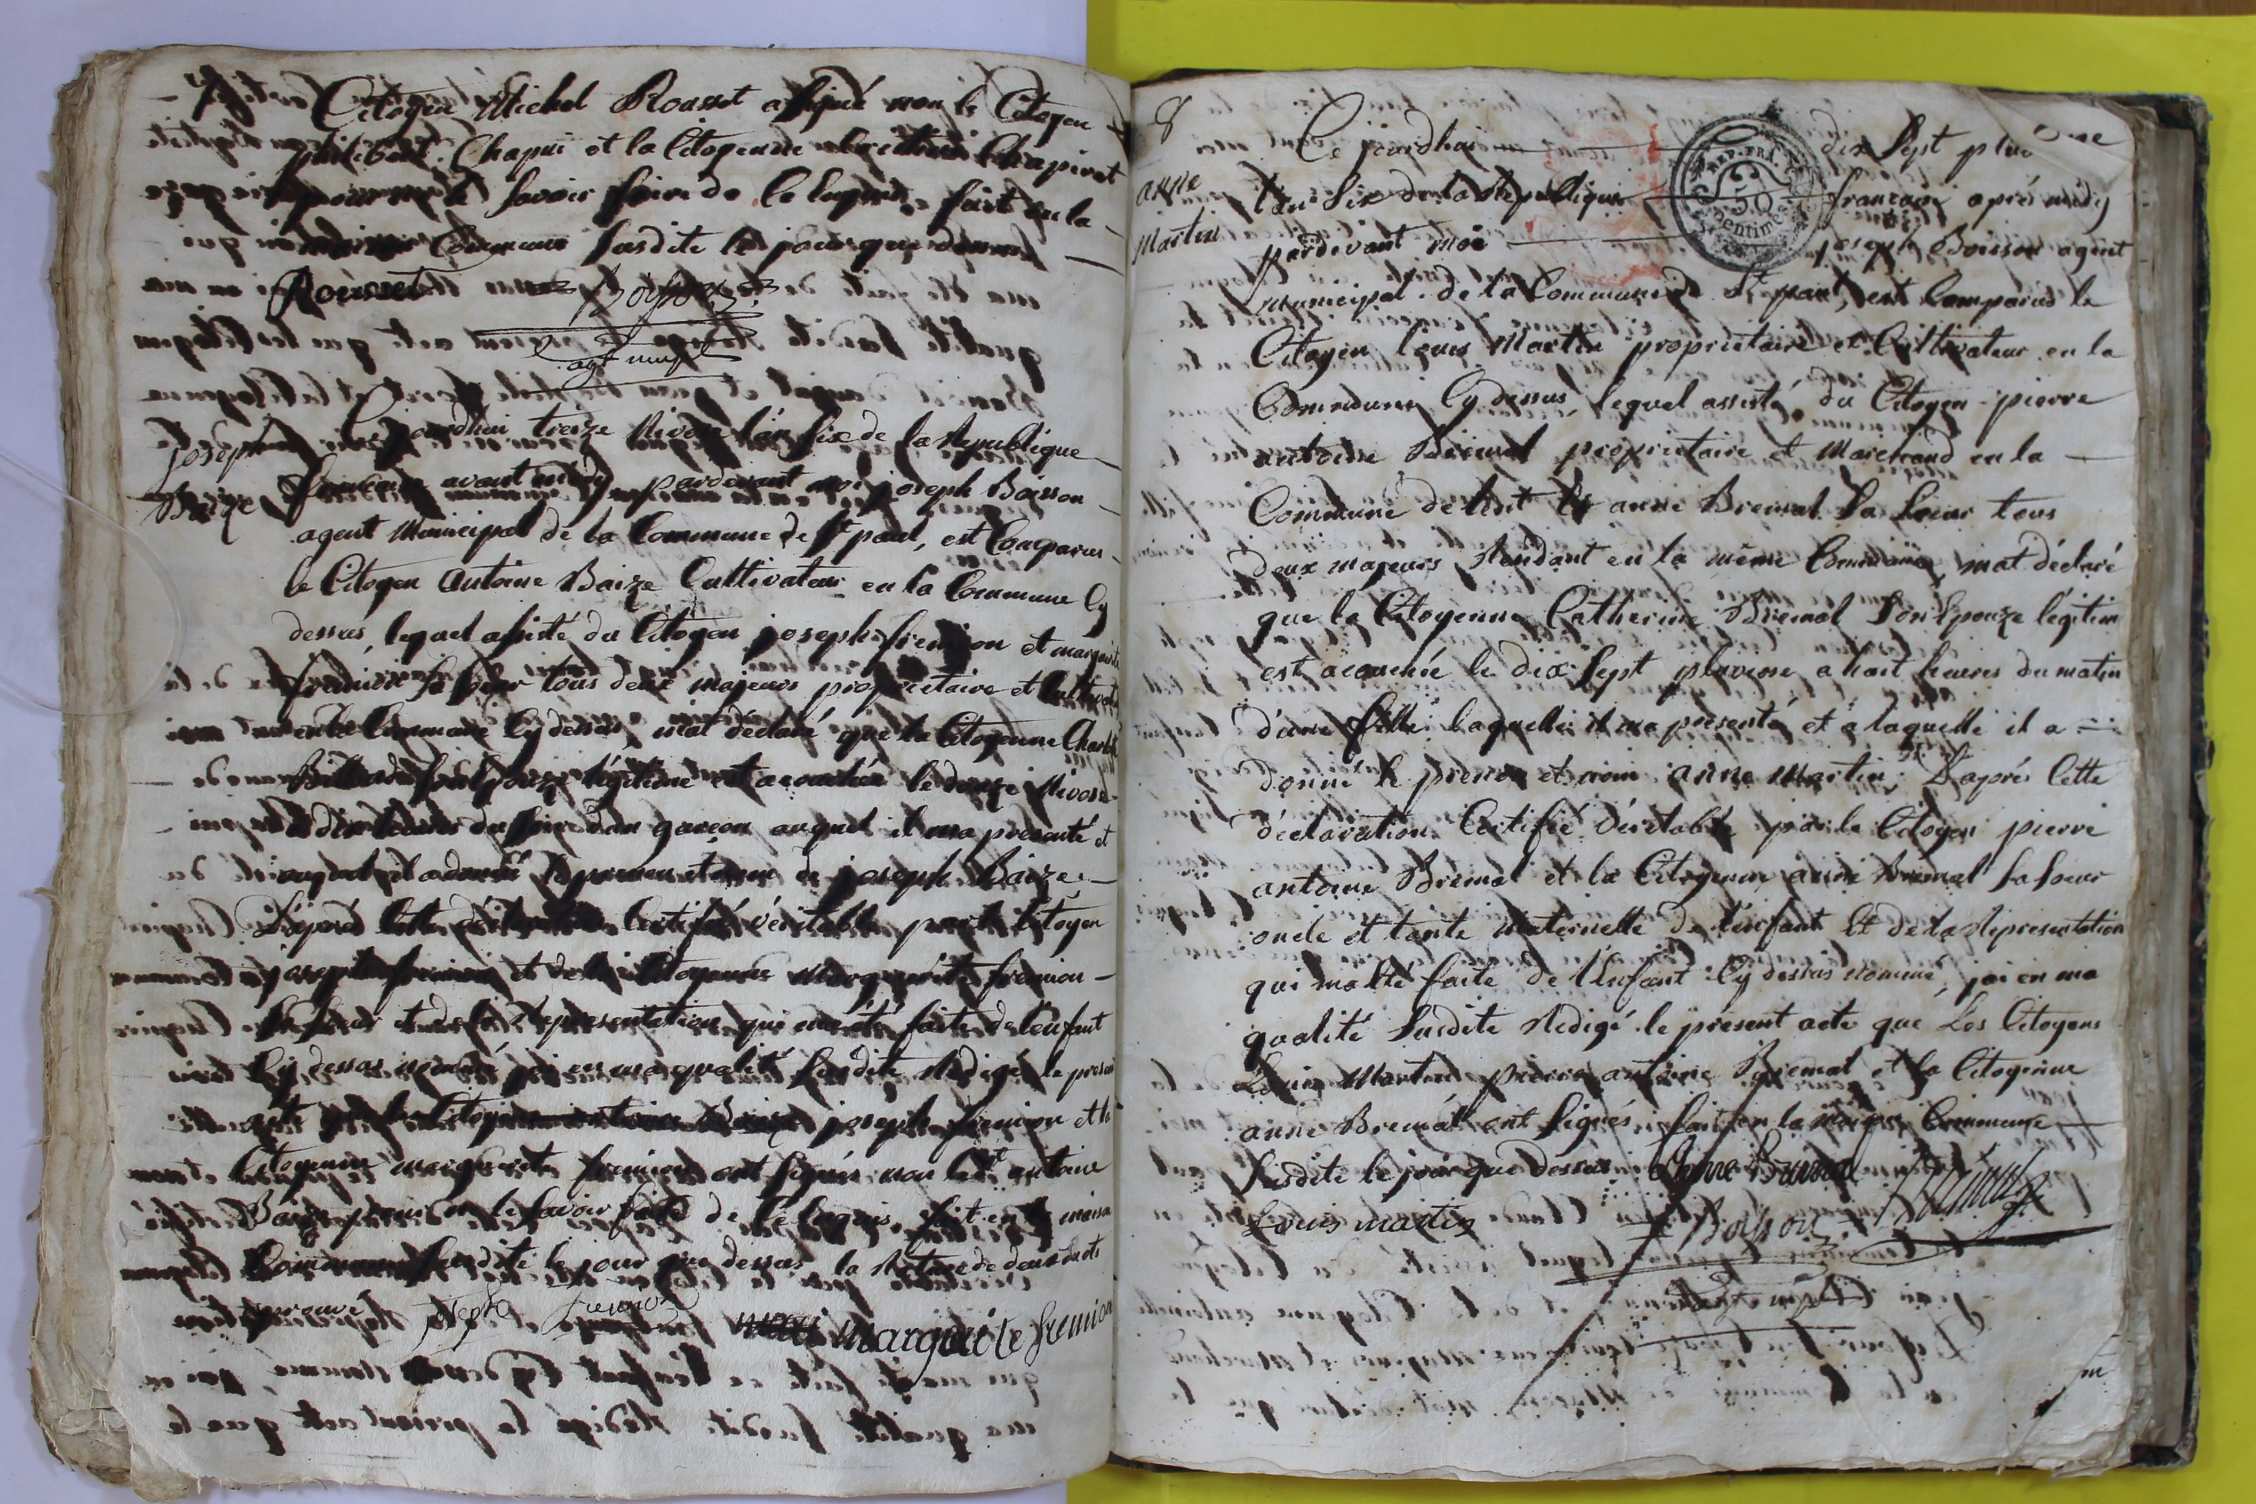 Citoyen Michel Rousset a signé non le Citoyen
philibert Chapui et la Citoyenne Chapirot
pour ne le Savoir faire de Ce Enquis fait en la
Commune Susdite le jour que dessus
Rousset Boisson
agt munpl
joseph
Baize
Ce jourdhui treize Nivose l'an six de la Republique
francaise avant midy pardevant moi joseph Boisson
agent Municipal de la Commune de St paul, est Comparus
le Citoyen Antoine Baize Cultivateur en la Commune Cy
dessus, lequel assisté du Citoyen joseph fremion et marguerite
fremion sa soeur tous deux majeurs proprietaire et Cultivateur
en la Commune Cy dessus, mat déclaré que la Citoyenne
son Epouze légitime est acouchée le douze Nivose
a dix heures du soir d'un garcon auquel il ma presenté et
auquel il a donné le prenom et nom de joseph Baize
D'après Cette déclaration Certifié véritable par le Citoyen
joseph fremion et de la Citoyenne Marguerite fremion
sa soeur et de la Representation qui ma été faite de l'enfant
Cy dessus nommé jai en ma qualité Susdite Redigé le present
acte que les Citoyens joseph fremion et la
Citoyenne marguerite fremion ont signés non ledit antoine
Baize pour ne le savoir faire de Ce Enquis, fait en la maison
Commune susdite le jour que dessus la Rature de deux mots
approuvé joseph fremion marguerite fremion
8
anne
Martin
Ce jourdhui dix Sept pluviose
REP. FRA.
50
Centimes
l'an Six de la Republique francaise après midy
pardevant moi joseph Boisson agent
municipal de la Commune de St paul, est Comparus le
Citoyen Louis Martin propriétaire et Cultivateur en la
Commune Cy dessus, lequel assisté du Citoyen pierre
antoine Bremal propriétaire et Marchand en la
Commune de et anne Bremal Sa Soeur tous
deux majeurs Residant en la même Commune, mat déclaré
que la Citoyenne Catherine Bremal Son Epouze légitime
est acouchée le dix Sept pluviose a huit heures du matin
d'une fille laquelle il ma présenté et a laquelle il a
donné le prenom et nom anne Martin; D'après Cette
déclaration Certifié Véritable par le Citoyen pierre
antoine Bremal et la Citoyenne anne Bremal Sa Soeur
oncle et tante Maternelle de l'enfant Et de la Representation
qui ma été faite de l'Enfant Cy dessus nommé, jai en ma
qualité Susdite Redigé le présent acte que Les Citoyens
Louis Martin pierre antoine Bremal et la Citoyenne
anne Bremal ont Signés, fait en la maison Commune
Susdite le jour que dessus anne Bremal
Louis martin Boisson